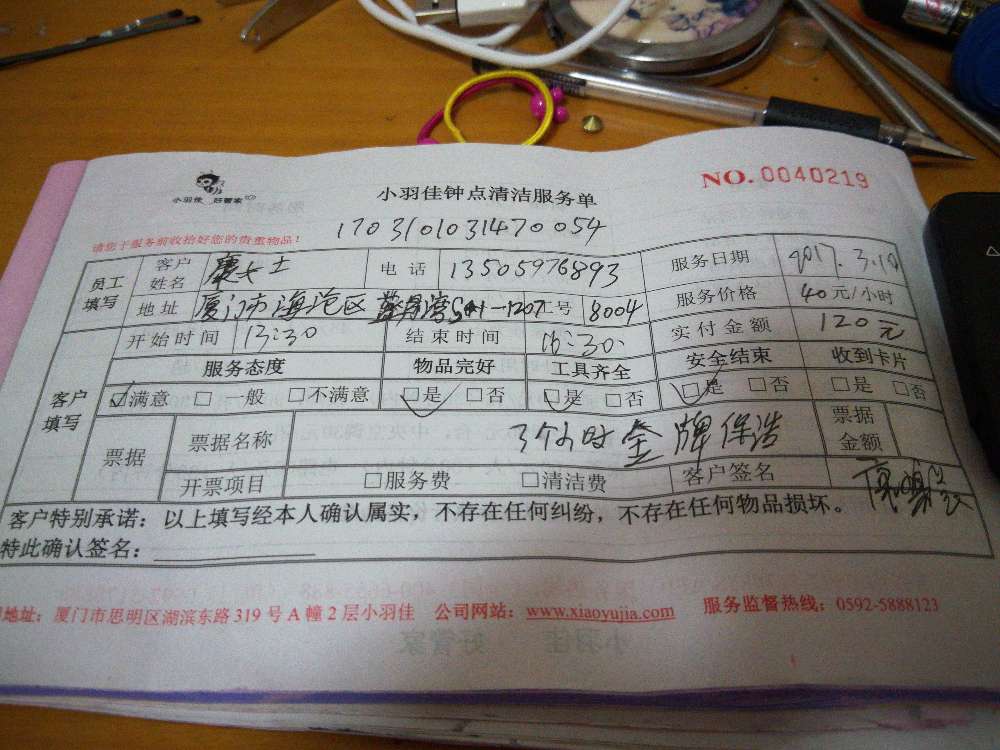 小羽佳 好管家
小羽佳钟点清洁服务单
NO.0040219
1703101031470054
请您于服务前收拾好您的贵重物品！
员工填写 客户姓名 女士 电话 13505976893 服务日期 2017.3.10
地址 厦门市海沧区 1207 工号 8004 服务价格 40元/小时
客户填写 开始时间 13:30 结束时间 16:30. 实付金额 120元
服务态度 物品完好 工具齐全 安全结束 收到卡片
☑满意 □ 一般 □不满意 ☑是 □否 ☑是 □否 ☑是 □否 □是 □否
票据 票据名称 3个小时金牌保洁 票据金额
开票项目 □服务费 □清洁费 客户签名
客户特别承诺：以上填写经本人确认属实，不存在任何纠纷，不存在任何物品损坏。
特此确认签名：
地址：厦门市思明区湖滨东路319号A幢2层小羽佳 公司网站：www.xiaoyujia.com 服务监督热线：0592-5888123